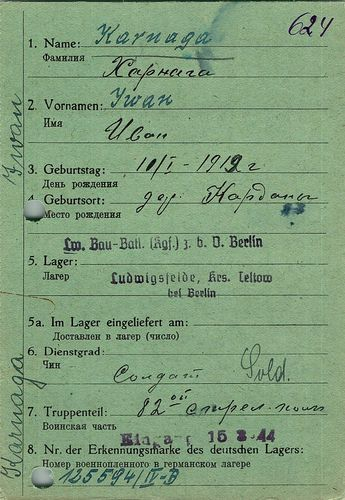 624
1. Name: Karnaga
Фамилия
Харнага
2. Vornamen: Iwan
Имя
Иван
3. Geburtstag: 10/I - 1912 г
День рождения
4. Geburtsort: дер.
Место рождения
Lw. Bau-Batl. (Kgf.) z. b. V. Berlin
5. Lager:
Лагер
Ludwigsfelde, Krs. Teltow
bei Berlin
5a. Im Lager eingeliefert am:
Доставлен в лагер (число)
6. Dienstgrad:
Чин
Солдат Sold.
7. Truppenteil: 82ой стрел. полк
Воинская часть
Eingang 15 3. 44
8. Nr. der Erkennungsmarke des deutschen Lagers:
Номер военнопленного в германском лагере
125594/IV-B
Iwan
Karnaga